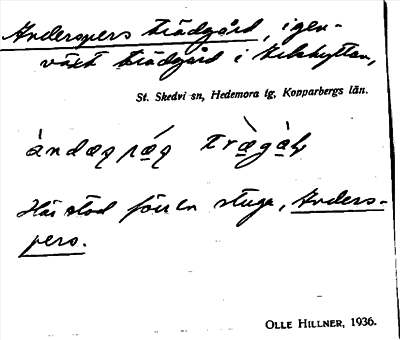 Anderspers trädgård, igen-
växt trädgård i Kelshyttan,
St. Skedvi sn, Hedemora tg, Kopparbergs län.
Här stod förr en stuga, Anders-
pers.
OLLE HILLNER, 1936.